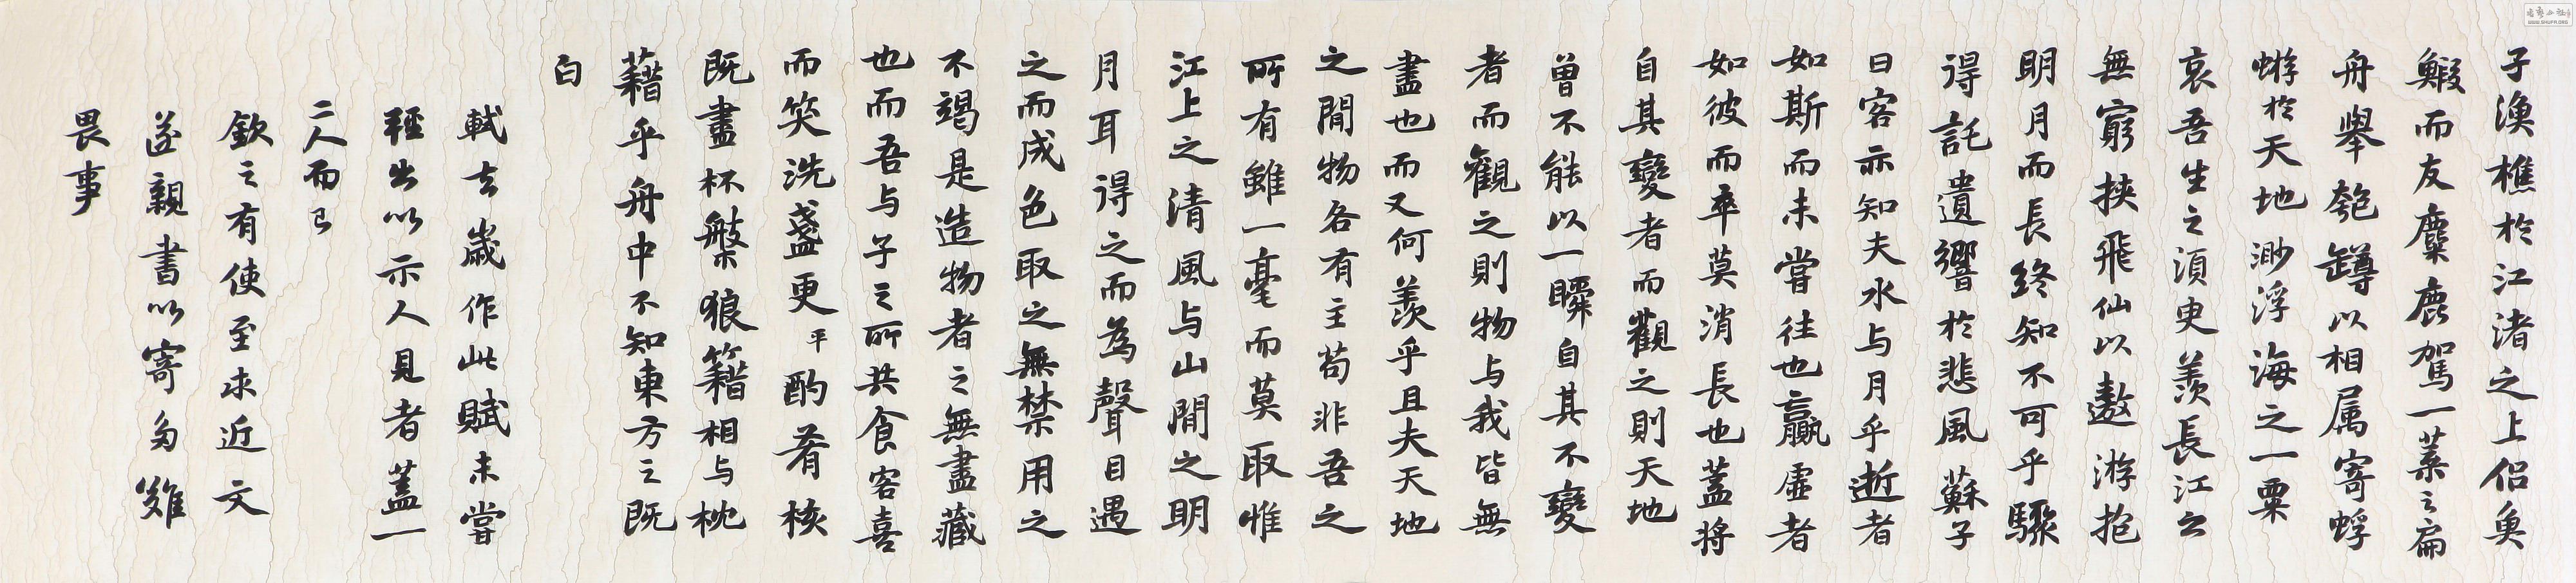 子漁樵於江渚之上侣魚
鰕而友麋鹿駕一葉之扁
舟舉匏罇以相属寄蜉
蝣於天地渺浮海之一粟
哀吾生之湏臾羡長江之
無窮挾飛仙以遨游抱
明月而長終知不可乎驟
得託遺響於悲風蘇子
曰客亦知夫水与月乎逝者
如斯而未嘗往也贏虚者
如彼而卒莫消長也蓋將
自其變者而觀之則天地
曾不能以一瞬自其不變
者而觀之則物与我皆無
盡也而又何羨乎且夫天地
之間物各有主苟非吾之
所有雖一毫而莫取惟
江上之清風与山間之明
月耳得之而為聲目遇
之而成色取之無禁用之
不竭是造物者之無盡藏
也而吾与子之所共食客喜
而笑洗盞更平酌肴核
既盡杯盤狼籍相与枕
藉乎舟中不知東方之既
白
軾去歲作此賦未嘗
輕出以示人見者蓋一
二人而已
欽之有使至求近文
遂親書以寄多難
畏事